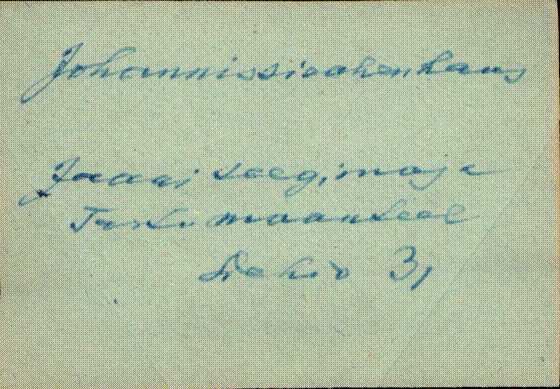 Johannissiechenhaus
Jaani seegimaja
Tartu maanteel
3,